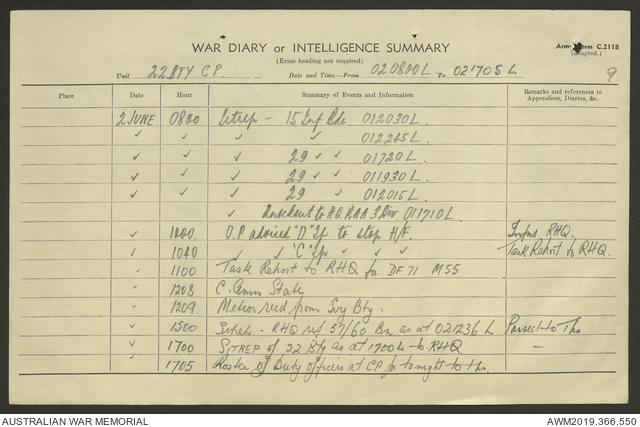 WAR DIARY or INTELLIGENCE SUMMARY
(Erase heading not required)
Army Form C.2118
(Adapted.)
Unit 22 BTY C.P. Date and Time—From 020800L To 021705L
9
Place Date Hour Summary of Events and Information Remarks and references to Appendices, Diaries, &c.
2 JUNE 0800 Sitrep - 15 Inf Bde 012030L.
✓ ✓ ✓ ✓ 012245L
✓ ✓ ✓ 29 ✓ ✓ 01720L.
✓ ✓ ✓ 29 ✓ ✓ 011930L.
✓ ✓ ✓ 29 ✓ 012015L.
✓ to HQ RAA 3 Div 011710L.
✓ 1000 O.P advised "D" Tp to stop H/F. RHQ.
✓ 1040 ✓ ✓ "C" Tp ✓ ✓ ✓ Task Report to RHQ.
✓ 1100 Task Report to RHQ for DF 71 M55
✓ 1208 C. Amn State
✓ 1209 Meteor recd from Svy Bty.
✓ 1500 Sitreps - RHQ ref 57/60 Bn as at 021236L Passed to Tps
✓ 1700 SITREP of 22 Bty as at 1700L to RHQ —
✓ 1705 Roster of Duty officers at CP for tonight to Tps.
AUSTRALIAN WAR MEMORIAL
AWM2019.366.550